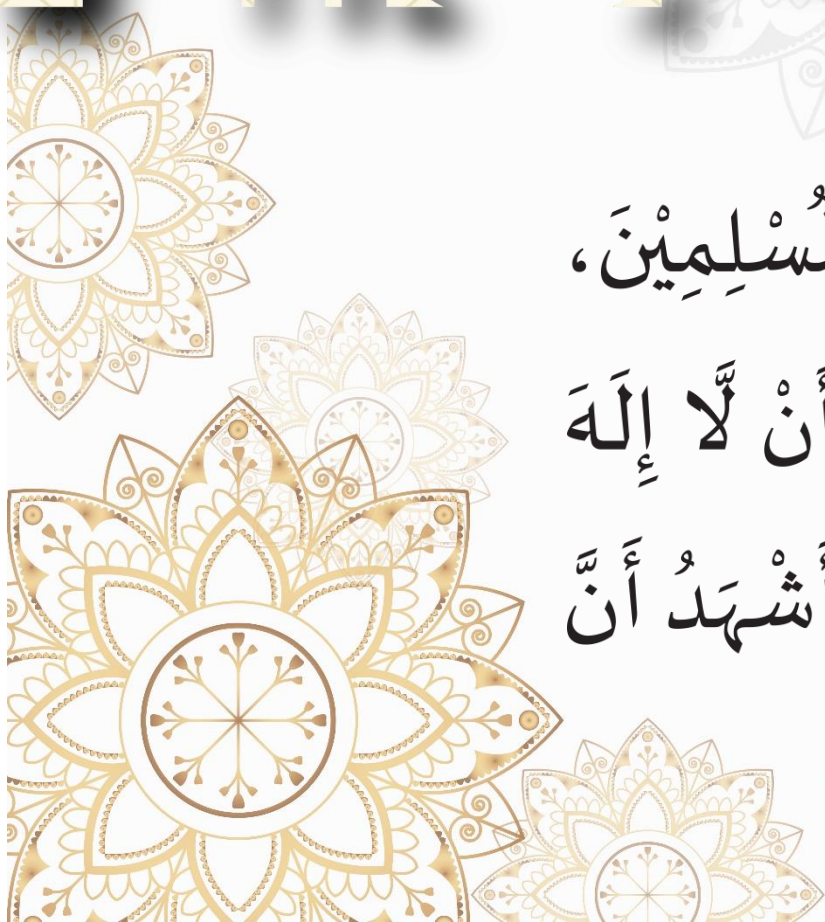 ُسْلِمِيْنَ،
أَنْ لَّا إِلَهَ
أَشْهَدُ أَنَّ